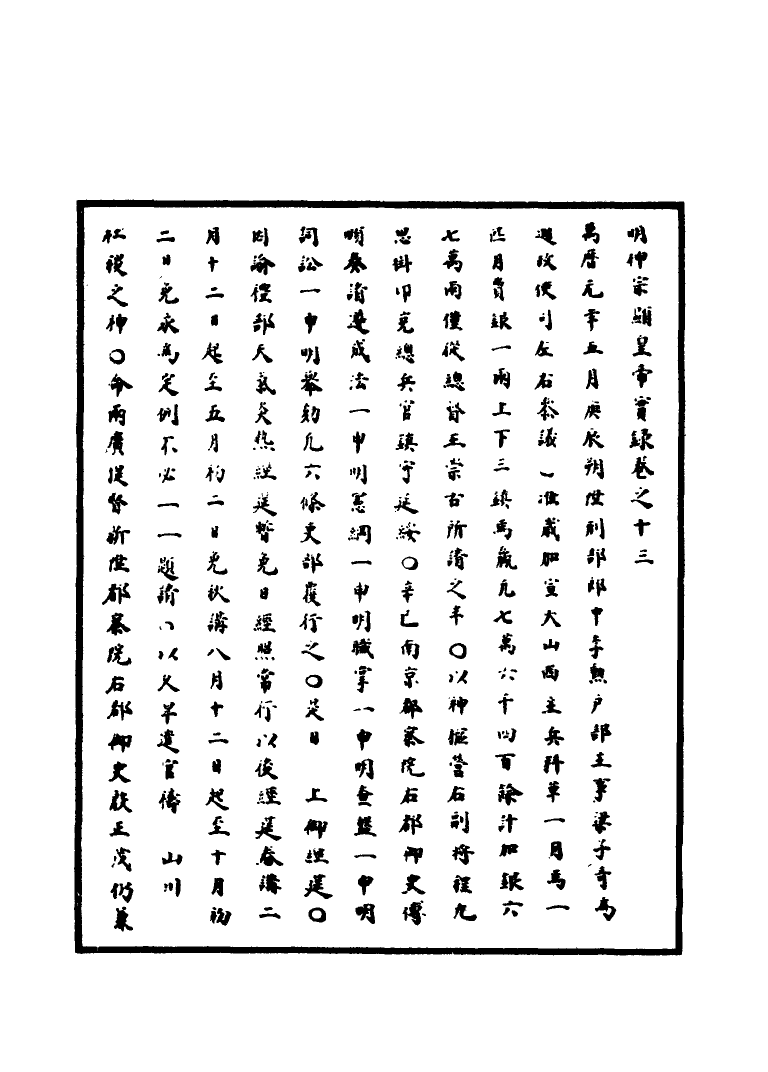 明神宗顯皇帝實錄卷之十三
萬曆元年五月庚辰朔陞刑部郎中李熟戶部主事梁子奇為
通政使司左右參議○准歲加宣大山西主兵料草一月馬一
匹月費銀一兩上下三鎮馬歲九七萬六千四百餘計加銀六
七萬兩僅從總督王崇古所請之半○以神樞營右副將程九
思掛印充總兵官鎮守延綏○辛巳南京都察院右都御史傅
頤奏請遵成法一申明憲綱一申明職掌一申明查盤一申明
詞訟一申明舉劾凡六條吏部覆行之○是日　上御經筵○
因諭禮部天氣炎熱經筵暫免日經照常行以後經筵春講二
月十二日起至五月初二日免秋講八月十二日起至十月初
二日免永為定例不必一一題請○以久旱遣官禱　山川
社稷之神○命兩廣提督新陞都察院右都御史殷正茂仍兼